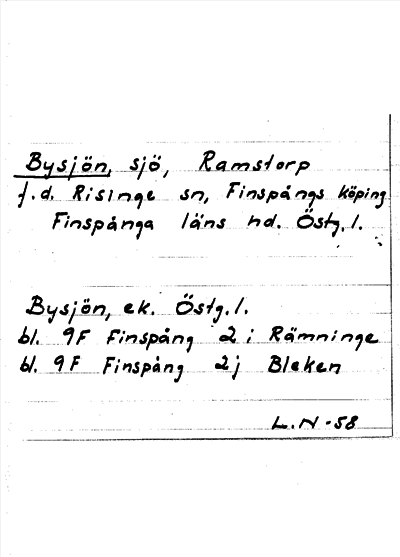 Bysjön, sjö, Ramstorp
f.d. Risinge sn, Finspångs köping
Finspånga läns hd. Östg.l.
Bysjön, ek. Östg.l.
bl. 9F Finspång 2 i Rämninge
bl. 9F Finspång 2j Bleken
L.N-58